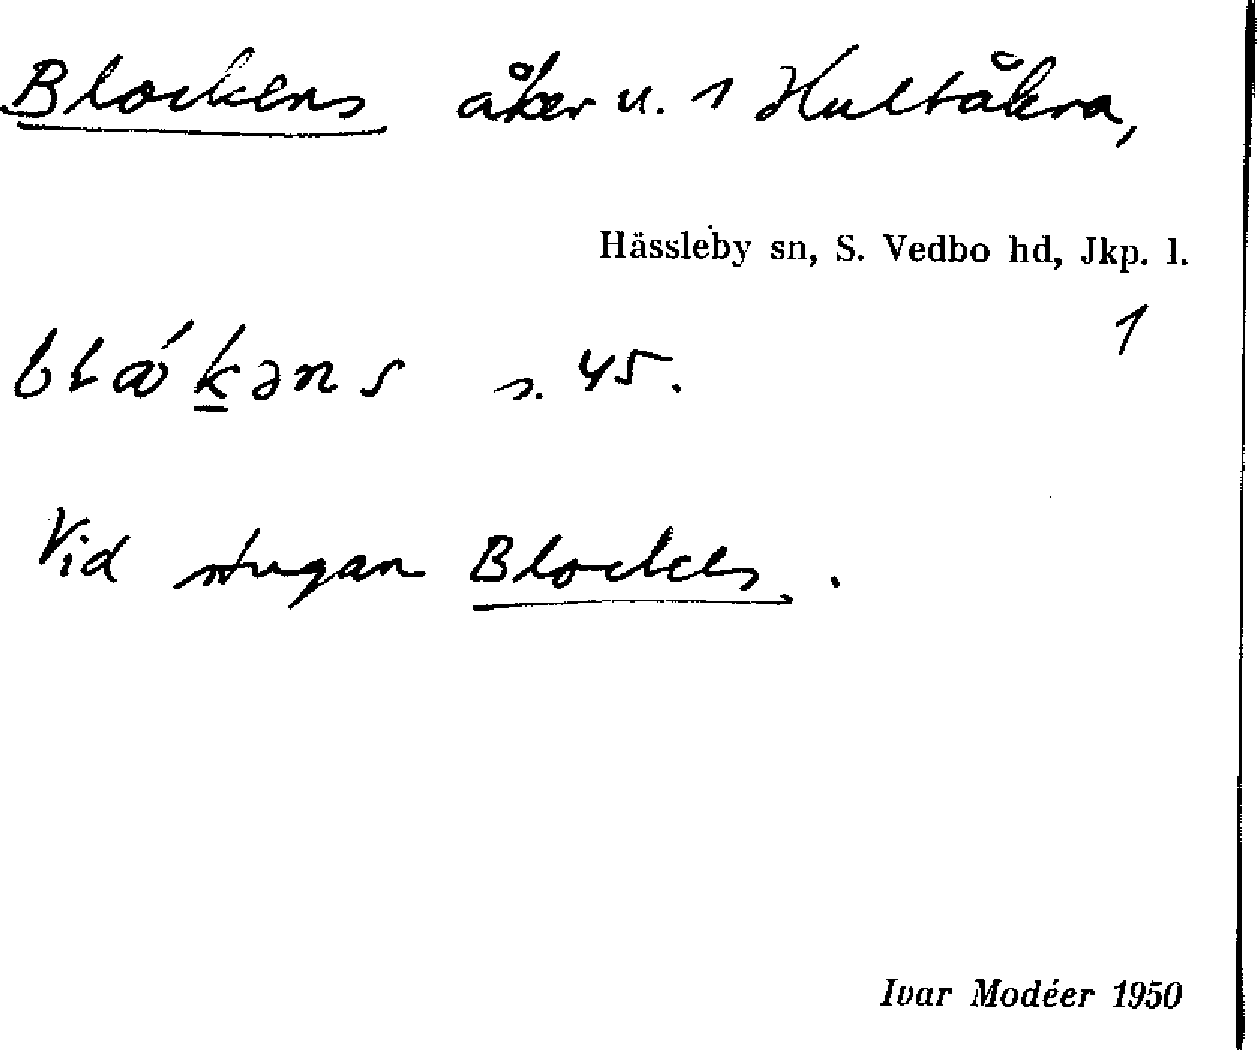 Blockens åker u. 1 Hultåkra,
Hässleby sn, S. Vedbo hd, Jkp. l.
1
s. 45.
Vid stugan Blockes.
Ivar Modéer 1950